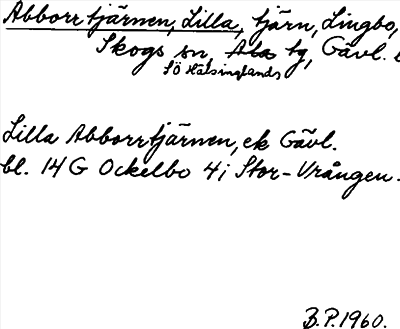 Abborrtjärnen, Lilla, tjärn, Lingbo,
Skogs sn, Ala tg, Gävl.
SÖ Hälsinglands
Lilla Abborrtjärnen, ek Gävl.
bl. 14 G Ockelbo 4 i Stor-Vrången.
B.P. 1960.